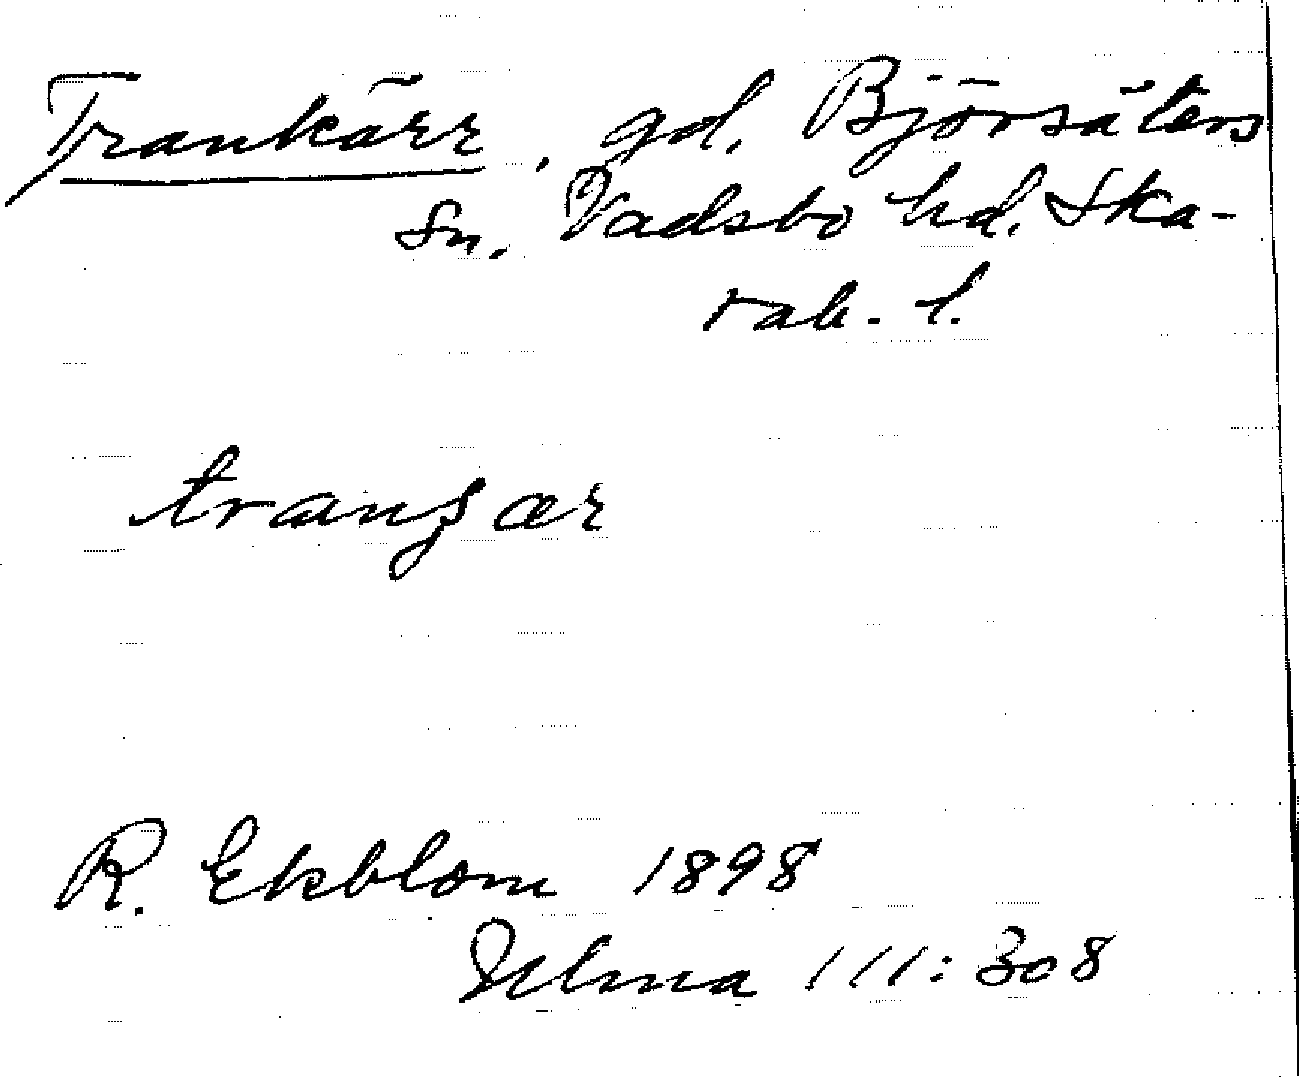 Trankärr, gd, Björsäters
Sn. Vadsbo hd. Ska-
rab. l.
tranȿær
R. Ekblom 1898
Ulma 111:308